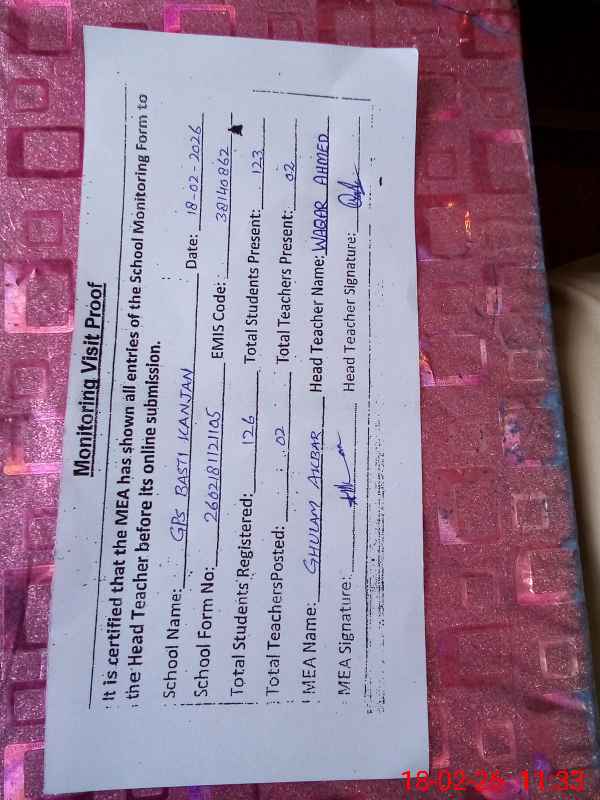 Monitoring Visit Proof
It is certified that the MEA has shown all entries of the School Monitoring Form to
the Head Teacher before its online submission.
School Name: GPS BASTI KANJAN Date: 18-02-2026
School Form No: 2602181121105 EMIS Code: 38140862
Total Students Registered: 126 Total Students Present: 123
Total TeachersPosted: 02 Total Teachers Present: 02
MEA Name: GHULAM AKBAR Head Teacher Name: WAQAR AHMED
MEA Signature: Head Teacher Signature:
18-02-26 11:33